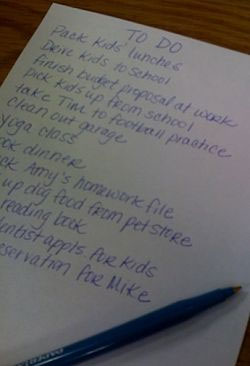 TO DO
Pack Kids' lunches
Drive Kids to school
finish budget proposal at work
pick kids up from school
take Tim to football practice
clean out garage
yoga class
ook dinner
ck Amy's homework file
up dog food from pet store
reading book
entist appts. for kids
eservation for Mike